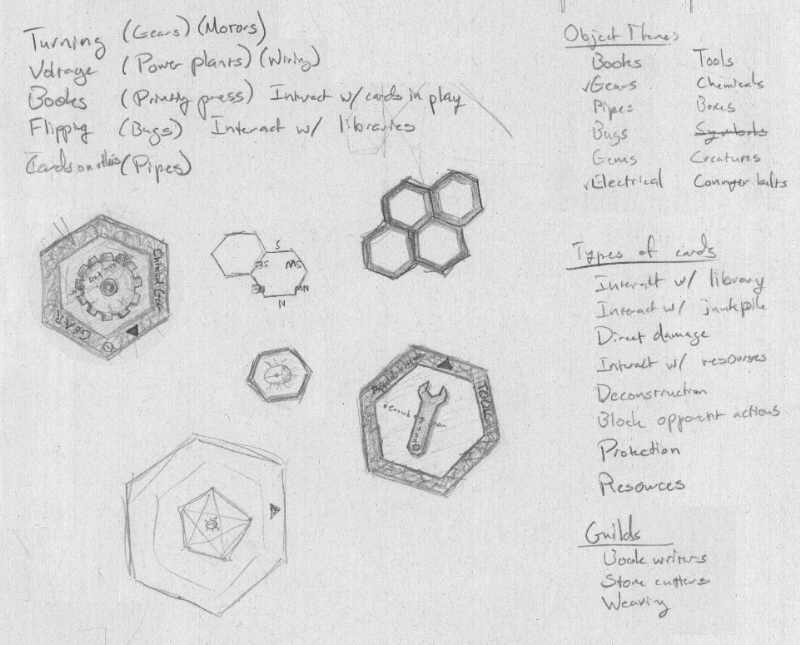 Turning (Gears) (Motors)
Voltage (Power plants) (Wiring)
Books (Printing press) Interact w/ cards in play
Flipping (Bugs) Interact w/ libraries
Cards on (Pipes)
Object Themes
Books Tools
✓Gears Chemicals
Pipes Boxes
Bugs Symbols
Gems Creatures
✓Electrical Conveyer belts
GEAR
S
SE SW
NE NW
N
TOOL
Types of cards
Interact w/ library
Interact w/ junkpile
Direct damage
Interact w/ resourses
Deconstruction
Block opponent actions
Protection
Resources
Guilds
Book writers
Stone cutters
Weaving